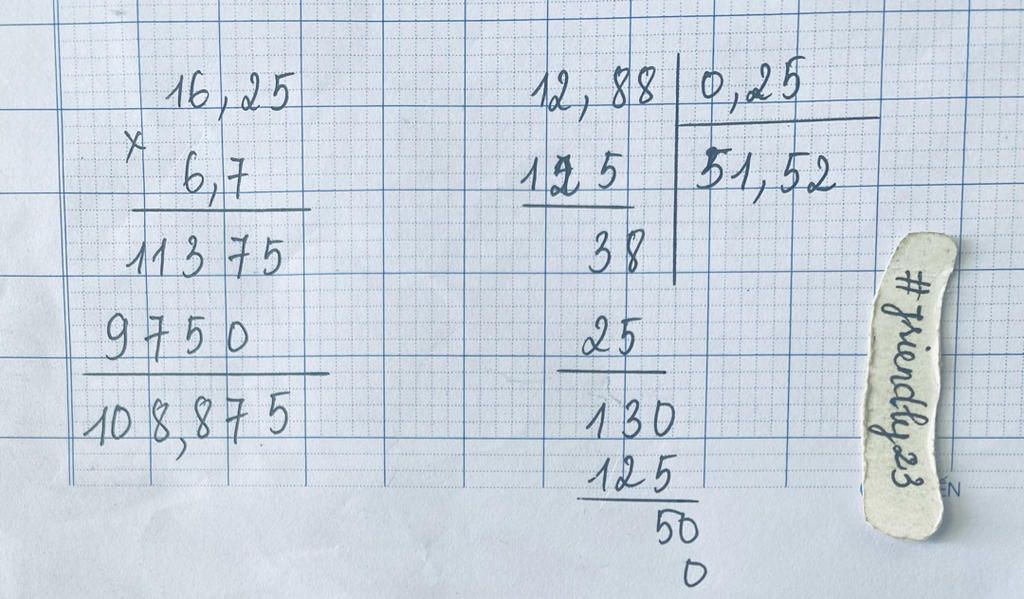 16,25
x
6,7
11375
9750
108,875
12,88 0,25
125 51,52
38
25
130
125
50
0
#friendly23